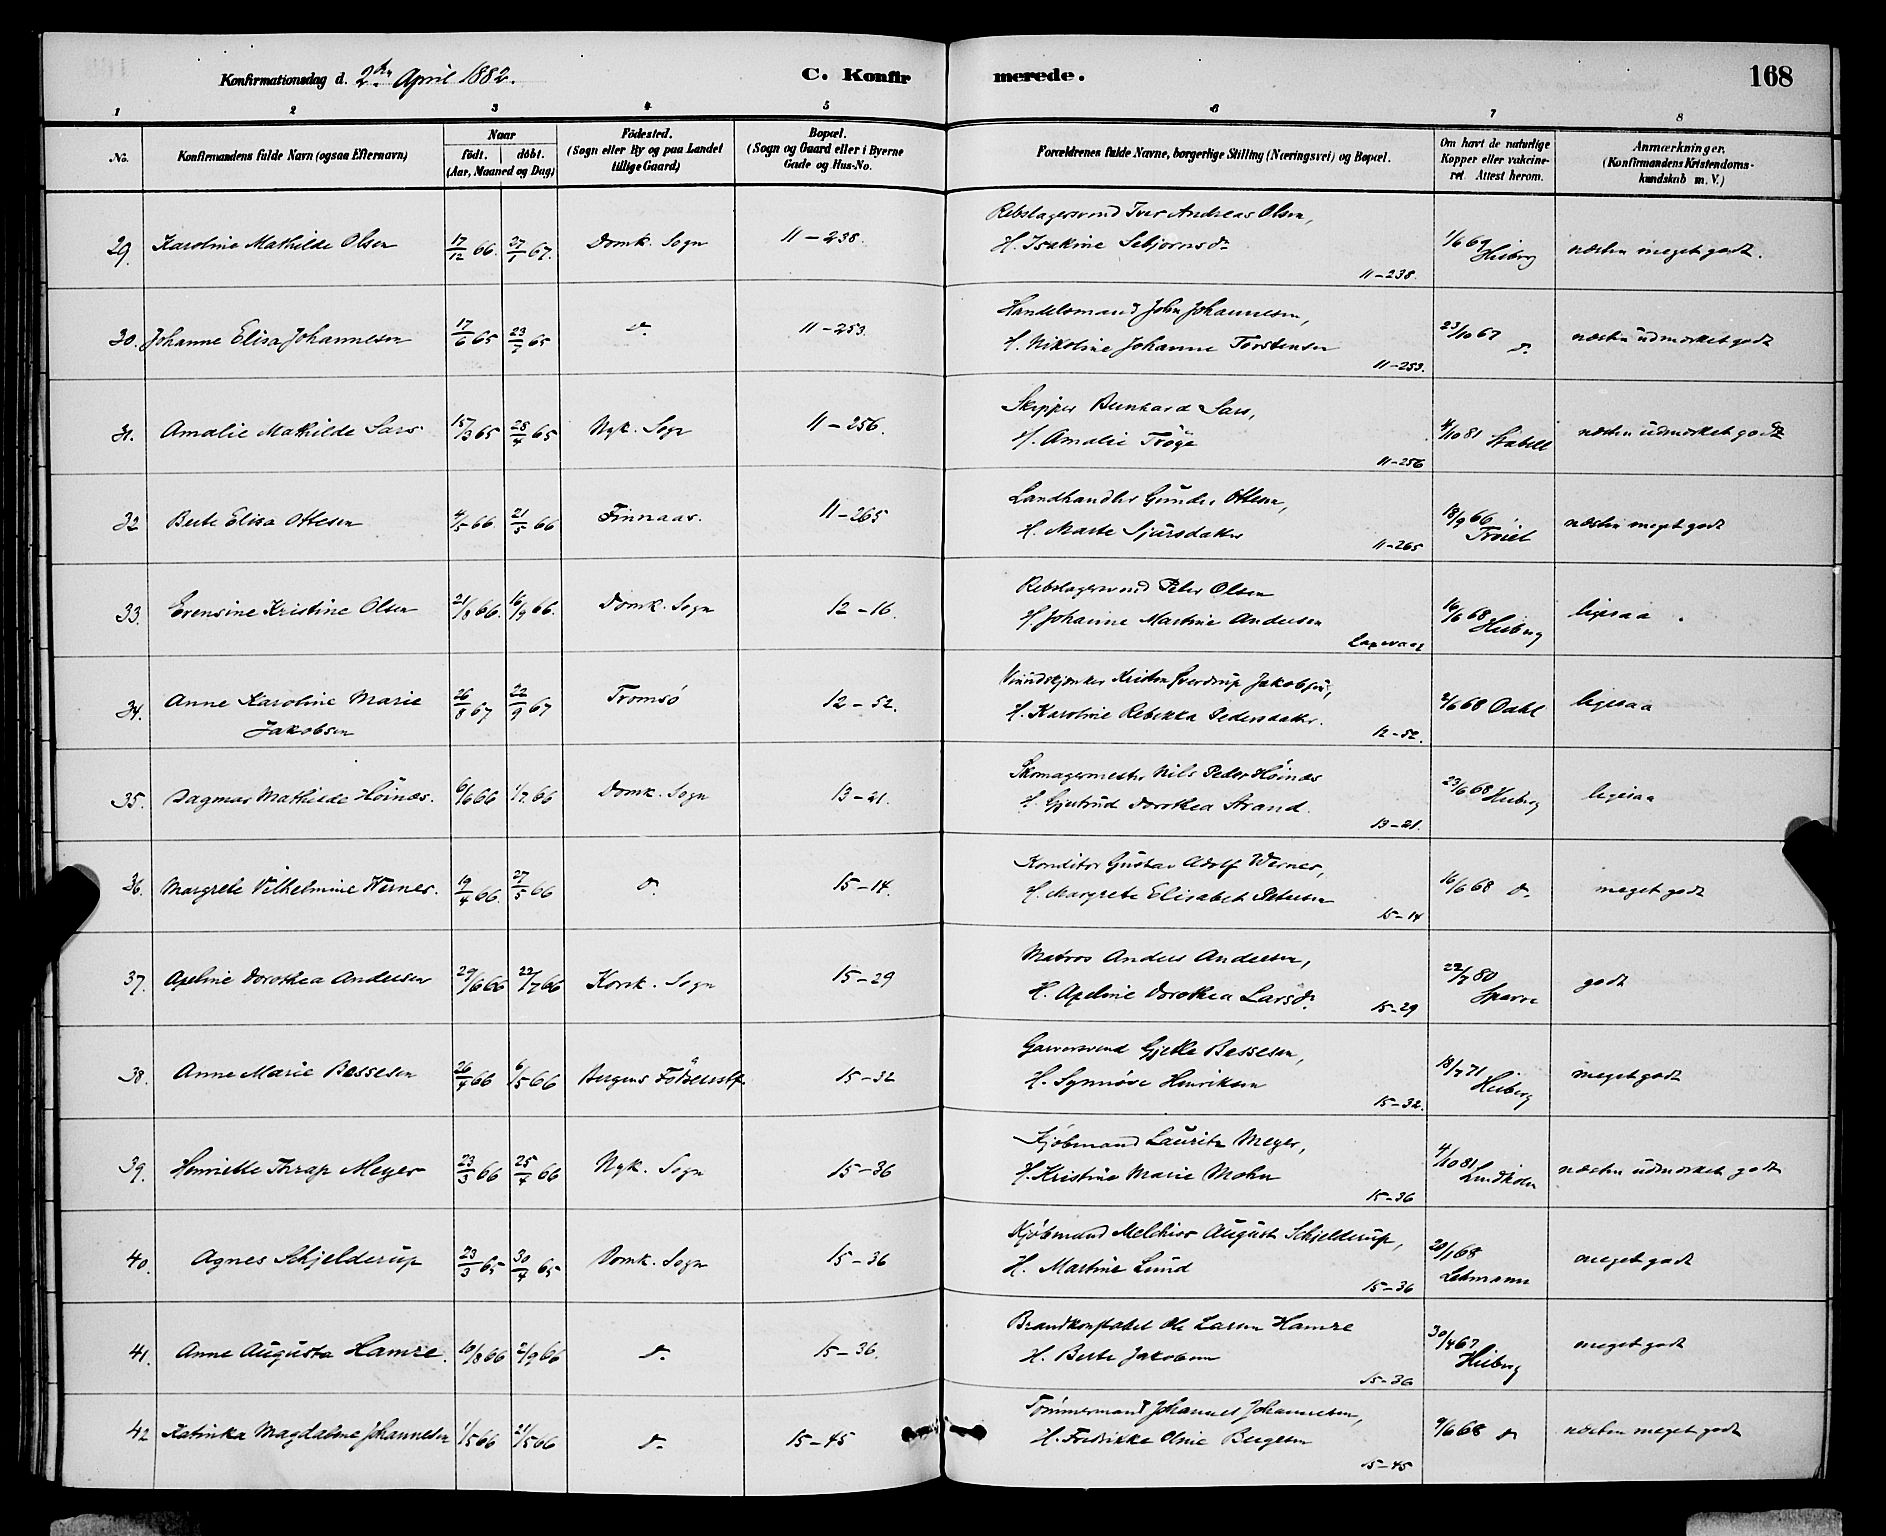 Konfirmationsdag d. 2den April 1882.
C. Konfirmerede.
168
1 2 3 4 5 6 7 8
No.
Konfirmandens fulde Navn (ogsaa Efternavn)
Naar
født. døbt.
(Aar, Maaned og Dag)
Födested.
(Sogn eller By og paa Landet
tillige Gaard)
Bopæl.
(Sogn og Gaard eller i Byerne
Gade og Hus-No.
Forældrenes fulde Navne, borgerlige Stilling (Næringsvei) og Bopæl.
Om havt de naturlige
Kopper eller vakcine-
ret. Attest herom.
Anmærkninger.
(Konfirmandens Kristendoms-
kundskab m. V.)
29. Karoline Mathilde Olsen 17/12 66. 27/1 67. Domk. Sogn 11-238.
Rebslagersvend Iver Andreas Olsen,
H. Isakine Sebjørnsdr
11-238.
1/6 69 Heiberg
næsten meget godt.
30. Johanne Elisa Johannesen 17/6 65 23/7 65 do 11-253.
Handelsmand John Johannesen,
H. Nikoline Johanne Torstensen
11-253.
23/10 67 do
næsten udmærket godt
31. Amalie Mathilde Sars 15/3 65 28/4 65 Nyk. Sogn 11-256.
Skipper Bernhard Sars,
H. Amalie Trøge
11-256
4/10 81 Stabell
næsten udmærket godt
32 Berte Elisa Ottesen 4/5 66. 21/5 66 Finnaas. 11-265
Landhandler Gunder Ottesen,
H. Marte Sjursdatter
11-265
18/9 66
næsten meget godt
33. Evensine Kristine Olsen 21/8 66. 16/9 66. Domk. Sogn 12-16.
Rebslagersvend Peter Olsen
H. Johanne Martine Andersen
Laxevaag
16/6 68 Heiberg
ligesaa.
34. Anne Karoline Marie
Jakobsen
26/8 67 22/9 67 Tromsö 12-52.
Kristen Sverdrup Jakobsen,
H. Karoline Rebekka Pedersdatter.
12-52.
2/6 68 Dahl
ligesaa
35. Dagmar Mathilde Höinæs. 6/6 66 1/7 66 Domk. Sogn 13-21.
Skomagermester Nils Peder Höinæs
H. Gjertrud Dorothea Strand.
13-21.
23/6 68 Heiberg
ligesaa
36. Margrete Vilhelmine Werner. 19/4 66. 27/5 66 do 15-14.
Konditor Gustav Adolf Werner,
H. Margrete Elisabet Petersen
15-14
16/6 68 do
meget godt
37. Apeline Dorothea Andersen 29/6 66 22/7 66 Korsk. Sogn 15-29
Matros Anders Andersen,
H. Apeline Dorothea Larsdr.
15-29
22/7 80 Sparre
godt
38. Anne Marie Bessesen 26/4 66 6/5 66 Bergens Födselsstif. 15-32
Garversvend Gjetle Bessesen,
H. Synnøve Henriksen
15-32.
18/7 71 Heiberg
meget godt
39. Henriette Thrap Meyer 23/3 66 25/4 66 Nyk. Sogn 15-36
Kjöbmand Lauritz Meyer,
H. Kristine Marie Mohn
15-36
4/10 81 Lindholm
næsten udmærket godt
40. Agnes Schjelderup 23/3 65 30/4 65 Domk. Sogn 15-36
Kjöbmand Melchior August Schjelderup,
H. Martine Lund
15-36
20/1 68
Lehmann
meget godt
41. Anne Augusta Hamre. 10/8 66 2/9 66 do 15-36.
Brandkonstabel Ole Larsen Hamre
H. Berte Jakobsen
15-36
30/4 67 Heiberg
meget godt
42 Katinka Magdalene Johannesen 1/5 66 21/5 66 do 15-45
Tømmermand Johannes Johannesen,
H. Fredrikke Oline Bergesen
15-45
9/6 68 do
næsten meget godt